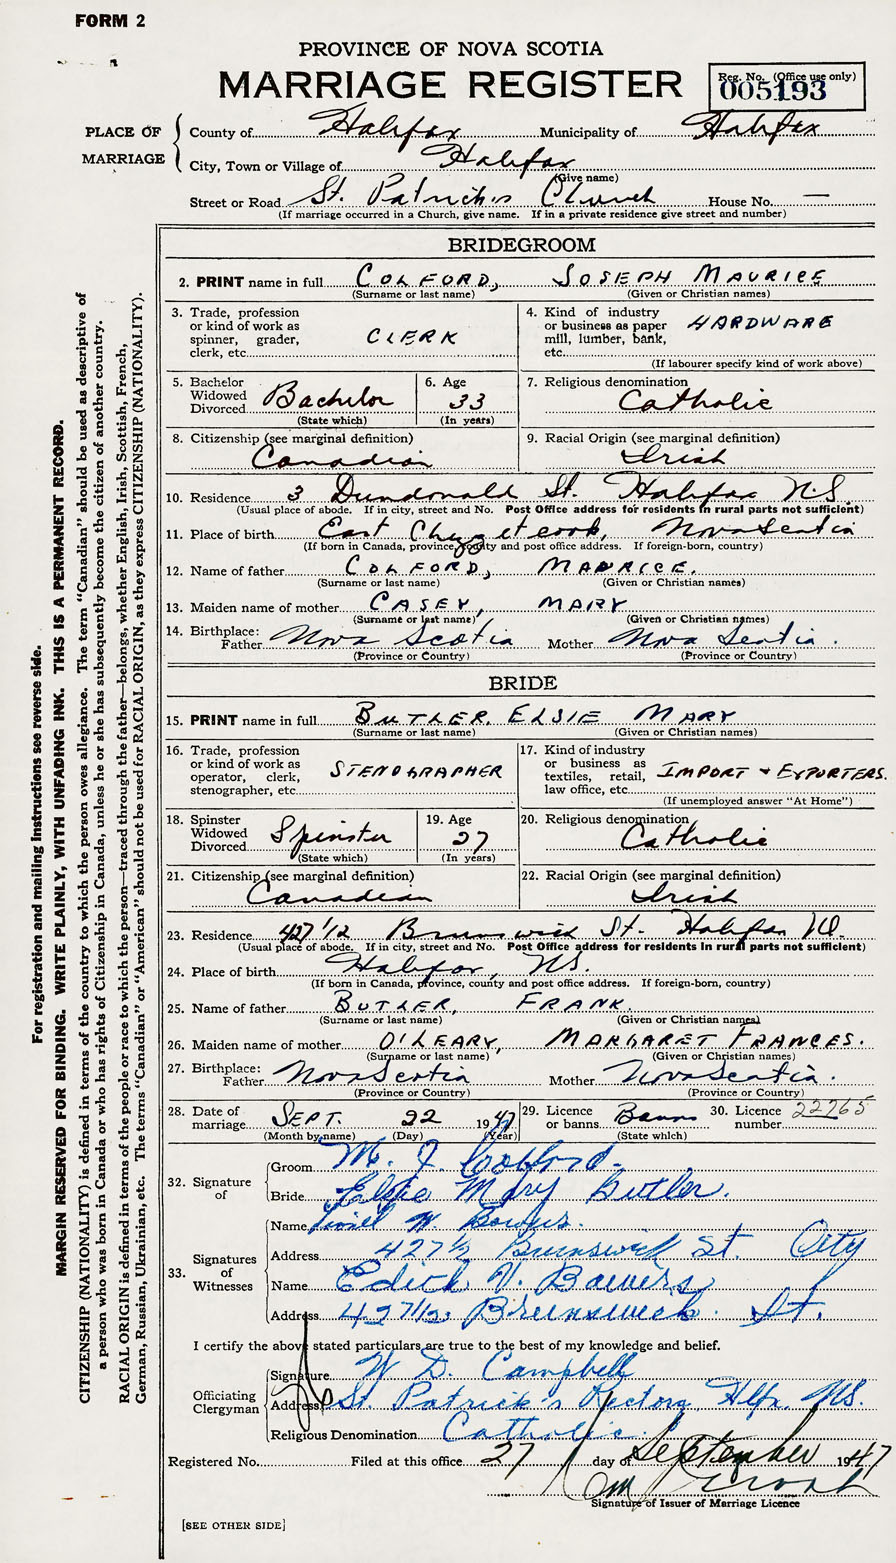 FORM 2
PROVINCE OF NOVA SCOTIA
MARRIAGE REGISTER
Reg. No. (Office use only)
005193
PLACE OF MARRIAGE
County of Halifax Municipality of Halifax
City, Town or Village of Halifax
(Give name)
Street or Road St. Patrick's Church House No. —
(If marriage occurred in a Church, give name. If in a private residence give street and number)
BRIDEGROOM
2. PRINT name in full COLFORD, JOSEPH MAURICE
(Surname or last name) (Given or Christian names)
3. Trade, profession or kind of work as spinner, grader, clerk, etc. CLERK
4. Kind of industry or business as paper mill, lumber, bank, etc. HARDWARE
(If labourer specify kind of work above)
5. Bachelor Widowed Divorced Bachelor
(State which)
6. Age 33
(In years)
7. Religious denomination Catholic
8. Citizenship (see marginal definition) Canadian
9. Racial Origin (see marginal definition) Irish
10. Residence 3 Dundonald St. Halifax N.S.
(Usual place of abode. If in city, street and No. Post Office address for residents in rural parts not sufficient)
11. Place of birth East Chezzetcook, Nova Scotia
(If born in Canada, province, county and post office address. If foreign-born, country)
12. Name of father COLFORD, MAURICE.
(Surname or last name) (Given or Christian names)
13. Maiden name of mother CASEY, MARY
(Surname or last name) (Given or Christian names)
14. Birthplace: Father Nova Scotia Mother Nova Scotia.
(Province or Country) (Province or Country)
BRIDE
15. PRINT name in full BUTLER, ELSIE MARY
(Surname or last name) (Given or Christian names)
16. Trade, profession or kind of work as operator, clerk, stenographer, etc. STENOGRAPHER
17. Kind of industry or business as textiles, retail, law office, etc. IMPORT & EXPORTERS.
(If unemployed answer "At Home")
18. Spinster Widowed Divorced Spinster
(State which)
19. Age 27
(In years)
20. Religious denomination Catholic
21. Citizenship (see marginal definition) Canadian
22. Racial Origin (see marginal definition) Irish
23. Residence 427 1/2 Brunswick St. Halifax
(Usual place of abode. If in city, street and No. Post Office address for residents in rural parts not sufficient)
24. Place of birth Halifax, N.S.
(If born in Canada, province, county and post office address. If foreign-born, country)
25. Name of father BUTLER, FRANK.
(Surname or last name) (Given or Christian names)
26. Maiden name of mother O'LEARY, MARGARET FRANCES.
(Surname or last name) (Given or Christian names)
27. Birthplace: Father Nova Scotia Mother Nova Scotia.
(Province or Country) (Province or Country)
28. Date of marriage SEPT. 22 1947
(Month by name) (Day) (Year)
29. Licence or banns Banns
(State which)
30. Licence number 22765
32. Signature of
Groom M. J. Colford.
Bride Elsie Mary Butler.
33. Signatures of Witnesses
Name W. Bowers.
Address 427½ Brunswick St. City
Name Edith V. Bowers
Address 427 1/2 Brunswick St.
I certify the above stated particulars are true to the best of my knowledge and belief.
Officiating Clergyman
Signature W D. Campbell
Address St. Patrick's Rectory Hlfx. N.S.
Religious Denomination Catholic.
Registered No. Filed at this office 27 day of September 1947
Signature of Issuer of Marriage Licence
[SEE OTHER SIDE]
For registration and mailing instructions see reverse side.
MARGIN RESERVED FOR BINDING. WRITE PLAINLY, WITH UNFADING INK. THIS IS A PERMANENT RECORD.
CITIZENSHIP (NATIONALITY) is defined in terms of the country to which the person owes allegiance. The term "Canadian" should be used as descriptive of
a person who was born in Canada or who has rights of Citizenship in Canada, unless he or she has subsequently become the citizen of another country.
RACIAL ORIGIN is defined in terms of the people or race to which the person—traced through the father—belongs, whether English, Irish, Scottish, French,
German, Russian, Ukrainian, etc. The terms "Canadian" or "American" should not be used for RACIAL ORIGIN, as they express CITIZENSHIP (NATIONALITY).